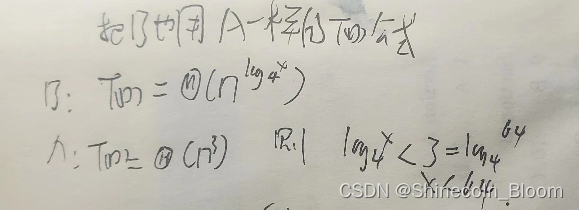 把B也用A一样的T(n)方式
B: T(n) = Θ(n^log₄x)
A: T(n) = Θ(n³) 则 log₄x < 3 = log₄64
x < 64.
CSDN @Shinecoln_Bloom